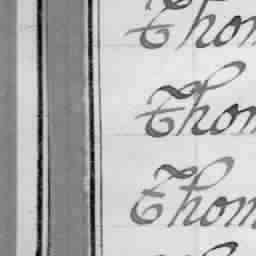 Thom
Thom
Thom